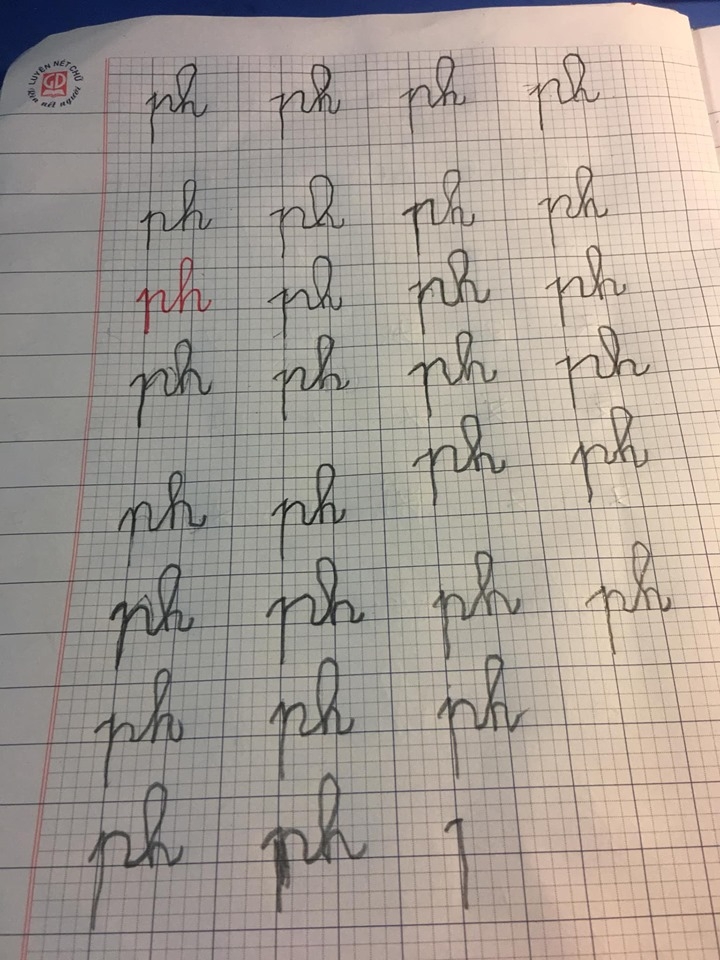 LUYỆN NÉT CHỮ
GD
ph ph ph ph
ph ph ph ph
ph ph ph ph
ph ph ph ph
ph ph
ph ph
ph ph ph ph
ph ph ph
ph ph